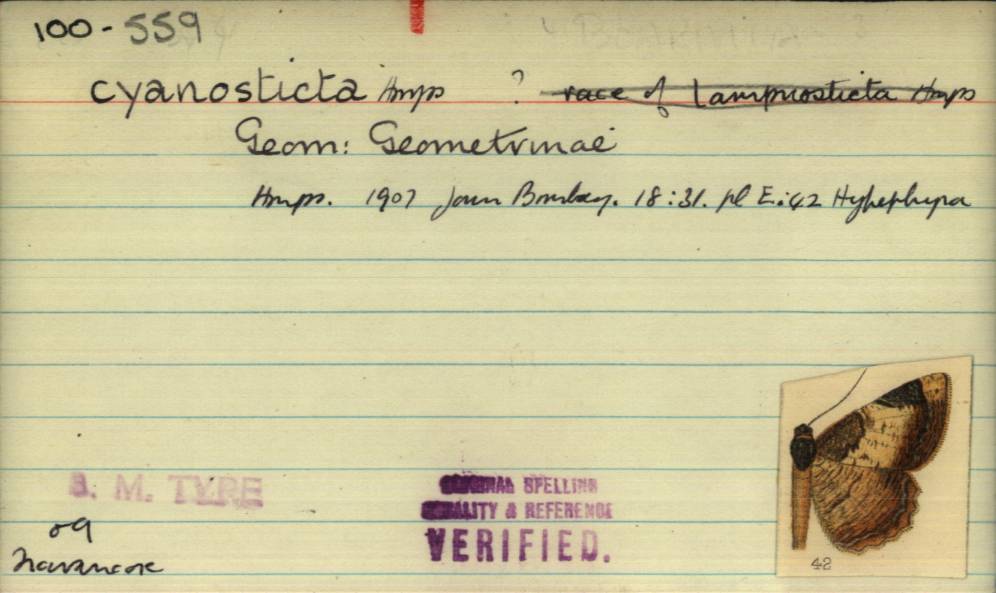 100-559
cyanosticta Hmps ? race of Lamprosticta Hmps
Geom: Geometrinae
Hmps. 1907 Journ Bombay. 18:31. pl E:42 Hyphephyra
B. M. TYPE
ORIGINAL SPELLING
LOCALITY & REFERENCE
VERIFIED.
Travancore
42